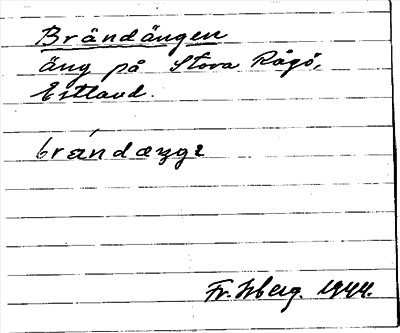 Brändängen
äng på Stora Rågö,
Estland.
Fr. Isberg. 1944.